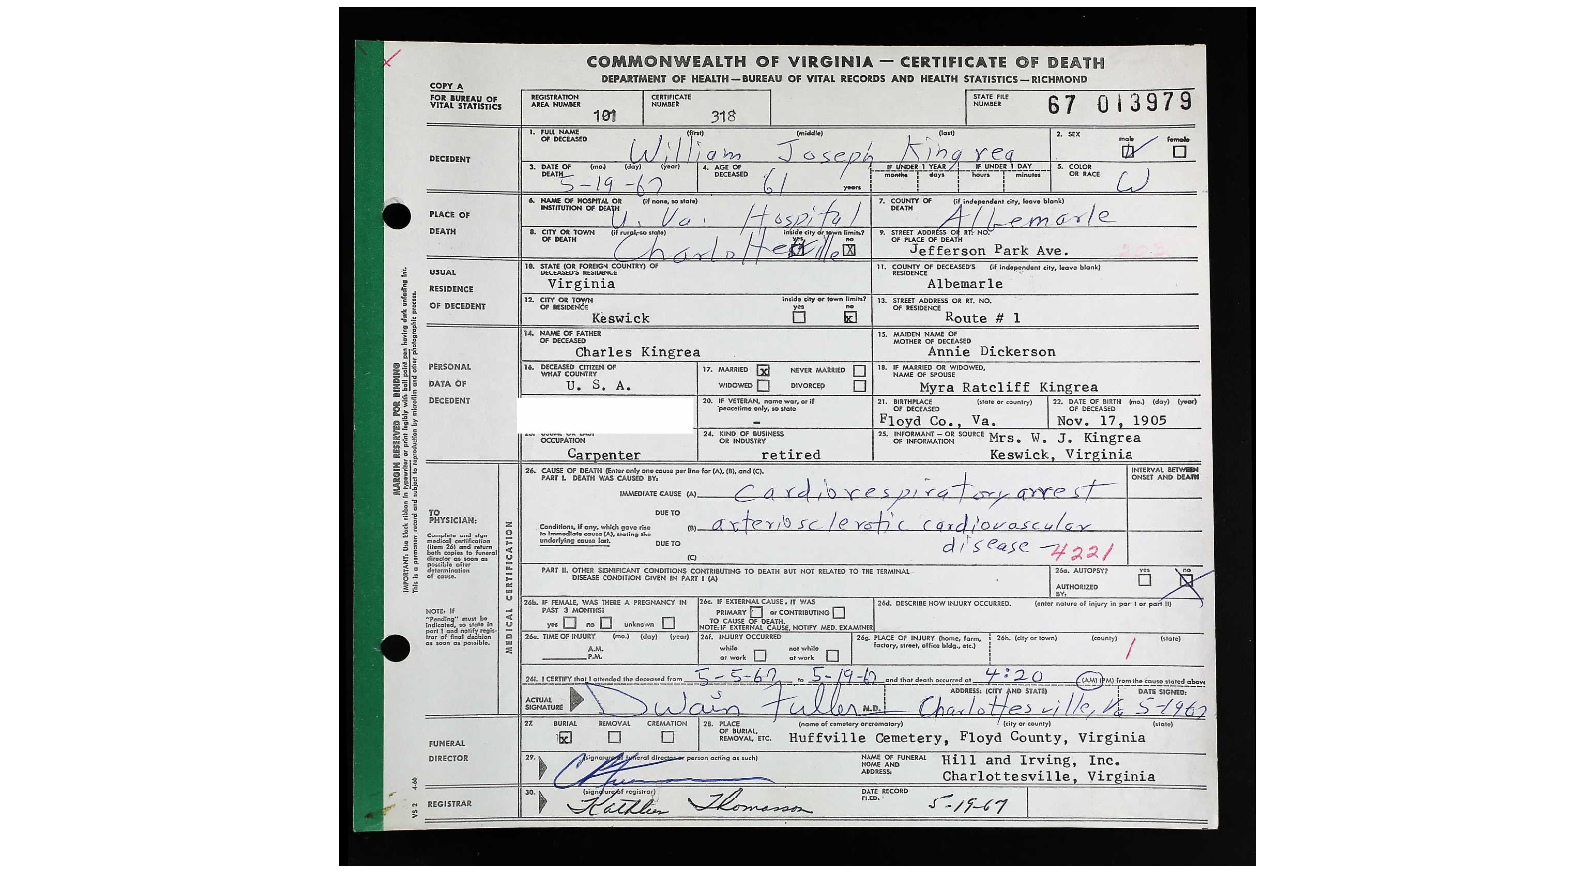 COMMONWEALTH OF VIRGINIA — CERTIFICATE OF DEATH
DEPARTMENT OF HEALTH—BUREAU OF VITAL RECORDS AND HEALTH STATISTICS—RICHMOND
COPY A
FOR BUREAU OF
VITAL STATISTICS
REGISTRATION
AREA NUMBER 101
CERTIFICATE
NUMBER 318
STATE FILE
NUMBER 67 013979
DECEDENT
1. FULL NAME OF DECEASED (first) (middle) (last)
William Joseph Kingrea
2. SEX male female
3. DATE OF DEATH (mo.) (day) (year)
5-19-67
4. AGE OF DECEASED
61 years
IF UNDER 1 YEAR months days
IF UNDER 1 DAY hours minutes
5. COLOR OR RACE
W
PLACE OF
DEATH
6. NAME OF HOSPITAL OR INSTITUTION OF DEATH (if none, so state)
U. Va. Hospital
7. COUNTY OF DEATH (if independent city, leave blank)
Albemarle
8. CITY OR TOWN OF DEATH (if rural, so state) inside city or town limits? yes no X
Charlottesville
9. STREET ADDRESS OR RT. NO. OF PLACE OF DEATH
Jefferson Park Ave.
USUAL
RESIDENCE
OF DECEDENT
10. STATE (OR FOREIGN COUNTRY) OF DECEASED'S RESIDENCE
Virginia
11. COUNTY OF DECEASED'S RESIDENCE (if independent city, leave blank)
Albemarle
12. CITY OR TOWN OF RESIDENCE inside city or town limits? yes no x
Keswick
13. STREET ADDRESS OR RT. NO. OF RESIDENCE
Route # 1
PERSONAL
DATA OF
DECEDENT
14. NAME OF FATHER OF DECEASED
Charles Kingrea
15. MAIDEN NAME OF MOTHER OF DECEASED
Annie Dickerson
16. DECEASED CITIZEN OF WHAT COUNTRY
U. S. A.
17. MARRIED x NEVER MARRIED
WIDOWED DIVORCED
18. IF MARRIED OR WIDOWED, NAME OF SPOUSE
Myra Ratcliff Kingrea
20. IF VETERAN, name war, or if peacetime only, so state
-
21. BIRTHPLACE OF DECEASED (state or country)
Floyd Co., Va.
22. DATE OF BIRTH OF DECEASED (mo.) (day) (year)
Nov. 17, 1905
OCCUPATION
Carpenter
24. KIND OF BUSINESS OR INDUSTRY
retired
25. INFORMANT — OR SOURCE OF INFORMATION
Mrs. W. J. Kingrea
Keswick, Virginia
MEDICAL CERTIFICATION
TO
PHYSICIAN:
Complete and sign
medical certification
(item 26) and return
both copies to funeral
director as soon as
possible after
determination
of cause.
NOTE: If
"Pending" must be
indicated, so state in
part I and notify regis-
trar of final decision
as soon as possible.
26. CAUSE OF DEATH (Enter only one cause per line for (A), (B), and (C).
PART I. DEATH WAS CAUSED BY:
INTERVAL BETWEEN
ONSET AND DEATH
IMMEDIATE CAUSE (A) Cardiorespiratory arrest
DUE TO
Conditions, if any, which gave rise
to immediate cause (A), stating the
underlying cause last.
(B) arteriosclerotic cardiovascular
disease - 4221
DUE TO
(C)
PART II. OTHER SIGNIFICANT CONDITIONS CONTRIBUTING TO DEATH BUT NOT RELATED TO THE TERMINAL
DISEASE CONDITION GIVEN IN PART I (A)
26a. AUTOPSY? yes no
AUTHORIZED
BY:
26b. IF FEMALE, WAS THERE A PREGNANCY IN
PAST 3 MONTHS?
yes no unknown
26c. IF EXTERNAL CAUSE, IT WAS
PRIMARY or CONTRIBUTING
TO CAUSE OF DEATH.
NOTE: IF EXTERNAL CAUSE, NOTIFY MED. EXAMINER
26d. DESCRIBE HOW INJURY OCCURRED. (enter nature of injury in par I or part II)
26e. TIME OF INJURY (mo.) (day) (year)
A.M.
P.M.
26f. INJURY OCCURRED
while at work not while at work
26g. PLACE OF INJURY (home, farm,
factory, street, office bldg., etc.)
26h. (city or town) (county) (state)
26i. I CERTIFY that I attended the deceased from 5-5-67 to 5-19-67 and that death occurred at 4:20 (AM) (PM) from the cause stated above
ACTUAL
SIGNATURE Dwain Fuller M.D.
ADDRESS: (CITY AND STATE)
Charlottesville, Va
DATE SIGNED:
5-1967
FUNERAL
DIRECTOR
27. BURIAL x REMOVAL CREMATION
28. PLACE OF BURIAL, REMOVAL, ETC. (name of cemetery or crematory) (city or county) (state)
Huffville Cemetery, Floyd County, Virginia
29. (signature of funeral director or person acting as such)
NAME OF FUNERAL
HOME AND
ADDRESS:
Hill and Irving, Inc.
Charlottesville, Virginia
REGISTRAR
30. (signature of registrar)
Kathleen Thomasson
DATE RECORD
FILED: 5-19-67
MARGIN RESERVED FOR BINDING
VS 2 4-66